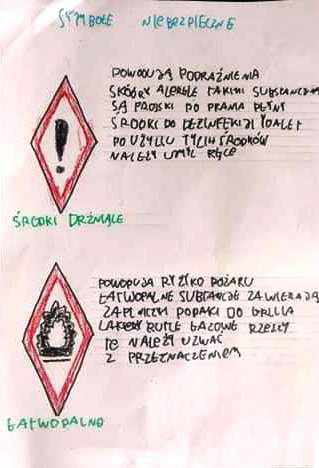 SYMBOLE NIEBEZPIECZNE
POWODUJĄ PODRAŻNIENIA
SKÓRY ALERGIE TAKIMI SUBSTANCJAMI
SĄ PROSZKI DO PRANIA PŁYNY
ŚRODKI DO DEZYNFEKCJI TOALET
PO UŻYCIU TYCH ŚRODKÓW
NALEŻY UMYĆ RĘCE
!
ŚRODKI DRŻNIĄCE
POWODUJĄ RYZYKO POŻARU
ŁATWOPALNE SUBSTANCJE ZAWIERAJĄ
DO GRILLA
LAKIERY BUTLE GAZOWE RZECZY
TE NALEŻY UŻWAĆ
Z PRZEZNACZENIEM
ŁATWOPALNO